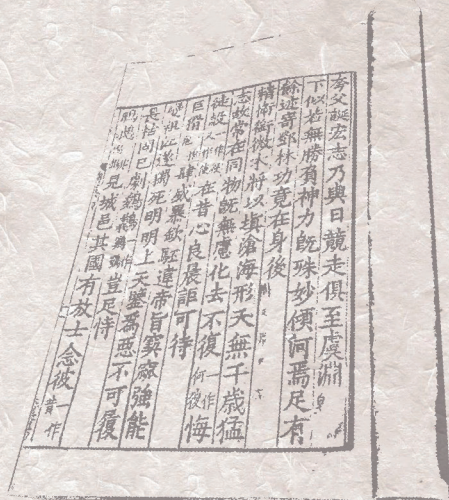 夸父誕宏志乃與日競走俱至虞淵
下似若無勝負神力旣殊妙傾河焉足有
餘迹寄鄧林功竟在身後
精衛銜微木將以填滄海形夭無千歲猛
志故常在同物旣無慮化去不復一作何復悔
徒設在昔心良晨詎可待
巨猾肆威暴欽駓違帝旨窫窳強能
變祖江遂獨死明明上天鑒爲惡不可履
長枯固已劇鵕鶚豈足恃
見城邑其國有放士念彼一作昔